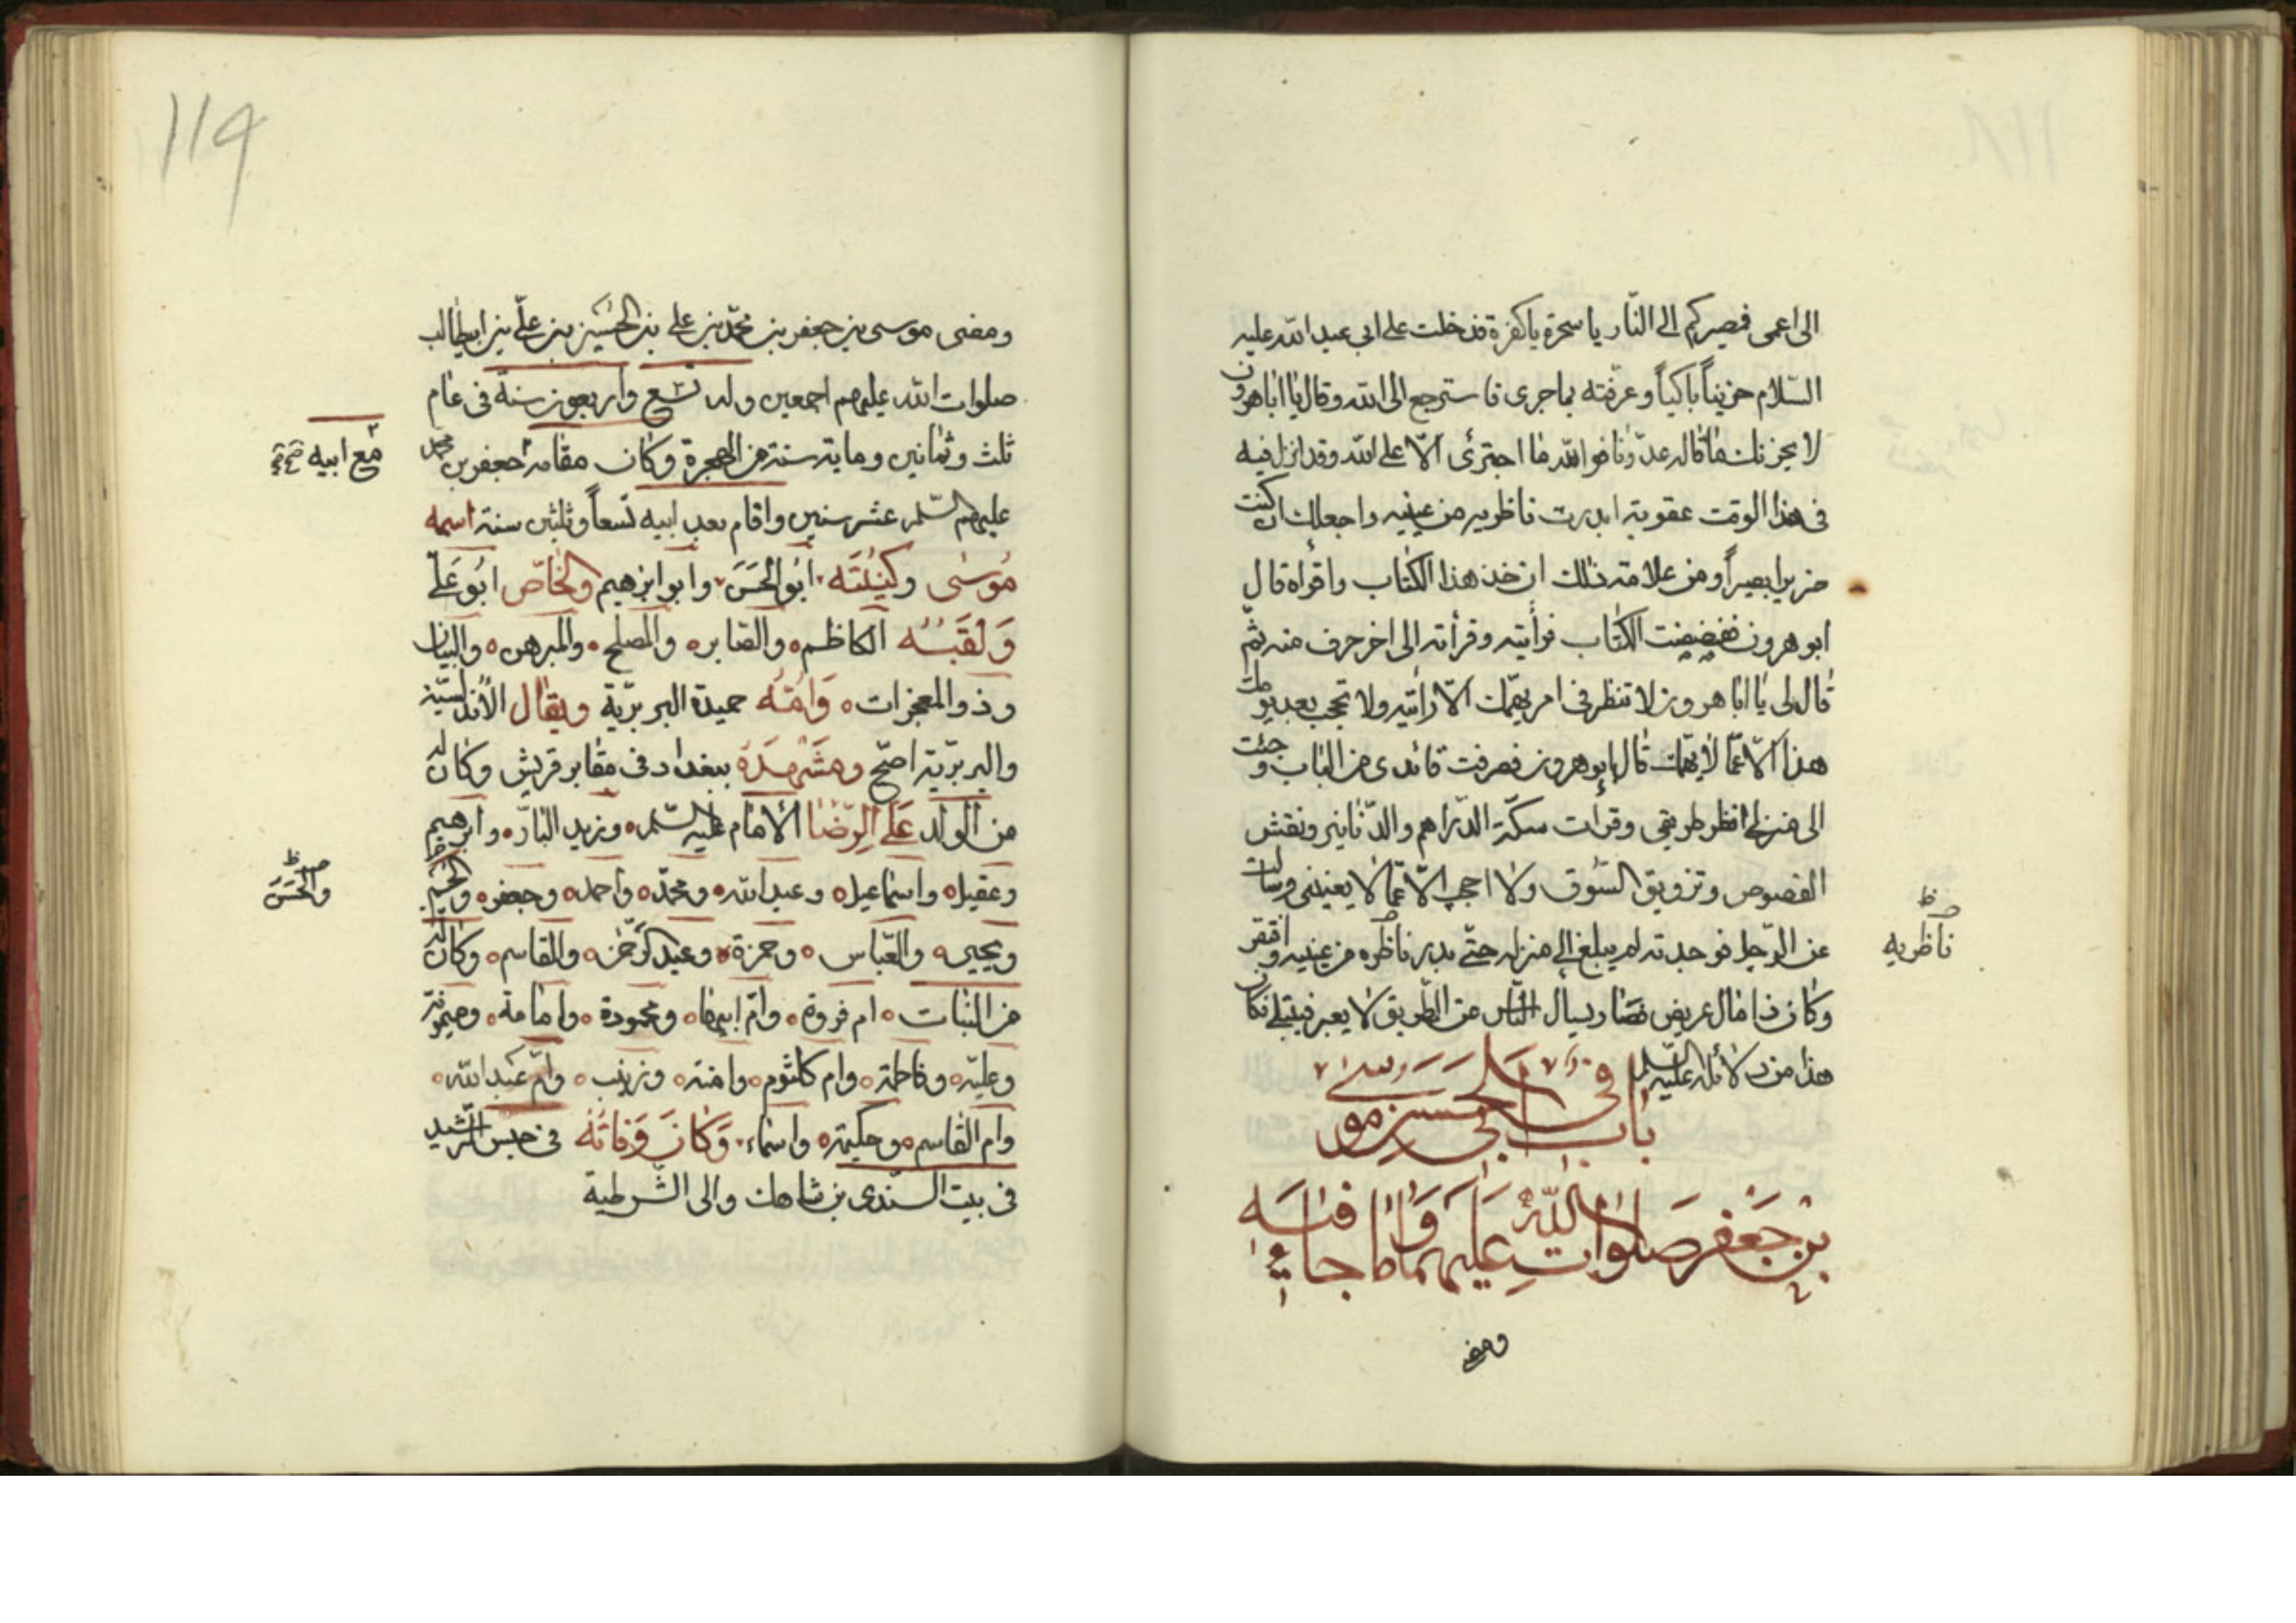 الى اعمى فمصيركم الى النار يا سحرة يا كفرة فدخلت على ابى عبد الله عليه
السّلام حزيناً باكياً وعرّفته بما جرى فاسترجع الى الله وقال يا ابا هرون
لا يحزنك ما قاله عدوّنا فوالله ما اجترئ الّا على الله وقد انزل فيه
فى هذا الوقت عقوبة ابدرت ناظريه من عينيه واجعلك ان كنت
ضريرا بصيراً ومن علامة ذلك ان خذ هذا الكتاب واقراه قال
ابو هرون ففضضت الكتاب فرأيته وقرأته الى اخر حرف منه ثمّ
قال لى يا ابا هرون لا تنظر فى امر يهمّك الّا رأيته ولا تحجب بعد يومك
هذا الّا عمّا لا يهمّك قال ابو هرون فصرفت قائدى من الباب وجئت
الى منزلى انظر طريقى وقرات سكّة الدّراهم والدّنانير ونقش
الفصوص وتزويق السّوق ولا احجب الّا عمّا لا يعنينى وسالت
عن الرّجل فوجدته لم يبلغ الى منزله حتّى بدر ناظره من عينيه وافتقر
وكان ذا مال عريض فصار يسأل النّاس عن الطّريق لا يعبر فيبتلى فكان
هذا من دلائله عليه السّلم
باب فى ابى الحسن موسى
بن جعفر صلوات الله عليهما وما جاء فيه
ومضى
ناظريه
119
ومضى موسى بن جعفر بن محمّد بن على بن الحسين بن علىّ بن ابيطالب
صلوات الله عليهم اجمعين وله تسع واربعون سنة فى عام
ثلث وثمانين وماية سنة من الهجرة وكان مقامه جعفر بن محمد
عليهم السّلم عشر سنين واقام بعد ابيه تسعاً وثلثين سنة اسمه
مُوسى وكنيته ابُو الحَسَن وابو ابرهيم والخاصّ ابُو عَلى
وَلقَبُه الكاظم والصابر والمصلح والمبرهن والبيان
وذو المعجزات وَامّه حميدة البربريّة ويقال الأندلسيّة
والبربريّة اصحّ ومَشهدَهُ ببغداد فى مقابر قريش وكان له
من الولد عَلى الرّضا الأمام عليه السّلم وزيد النار وابرهيم
وعقيل واسماعيل وعبد الله ومحمّد واحمد وجعفر
ويحيى والعّباس وحمزة وعبد الرّحمن والقاسم وكان له
من البنات ام فروة وامّ ابيها ومحمودة وامامة وميمونة
وعليّه وفاطمة وام كلثوم وامنه وزينب وامّ عبد الله
وام القاسم وحكيمة واسماء وَكانَ وَفاتُهُ فى حبس الرّشيد
فى بيت السّندى بن شاهك والى الشّرطية
مع ابيه صح
والحَسَن